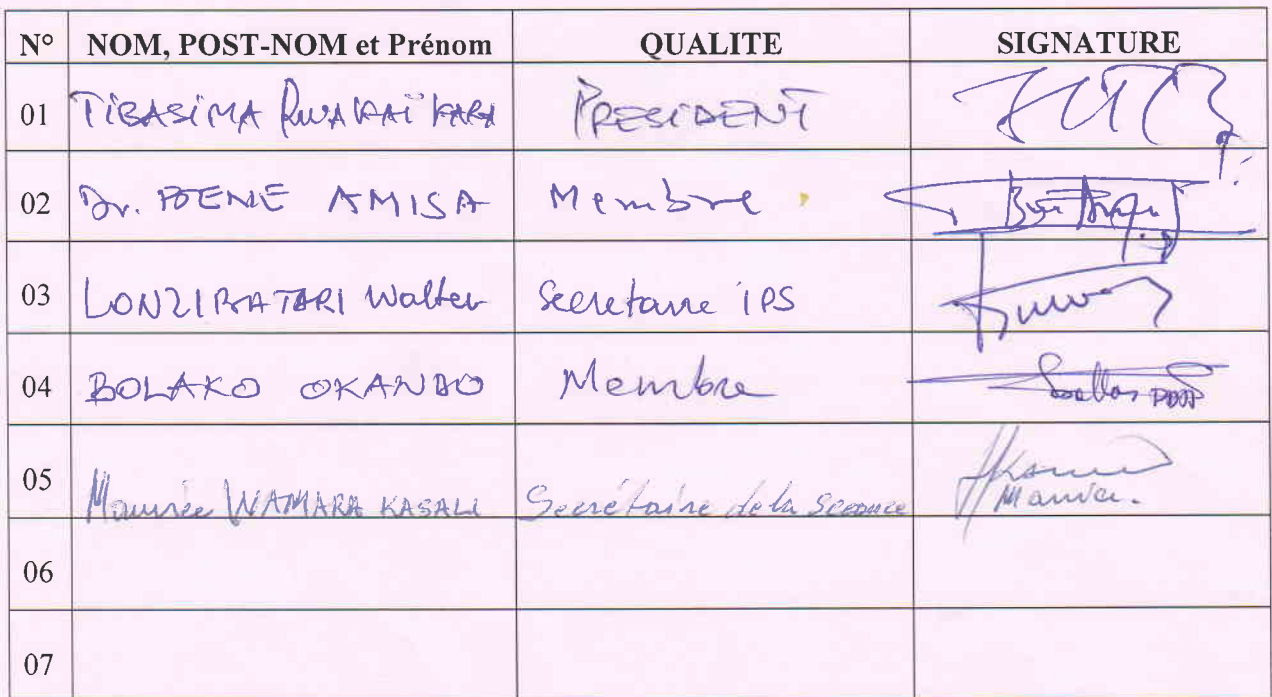 N° NOM, POST-NOM et Prénom QUALITE SIGNATURE
01 TIBASIMA RWAKAÏKARA PRESIDENT
02 Dr. BENE AMISA Membre
03 LONZIBATARI Walter Secretaire IPS
04 BOLAKO OKANDO Membre
05 Maurice WAMARA KASALI Secrétaire de la Sceance
06
07